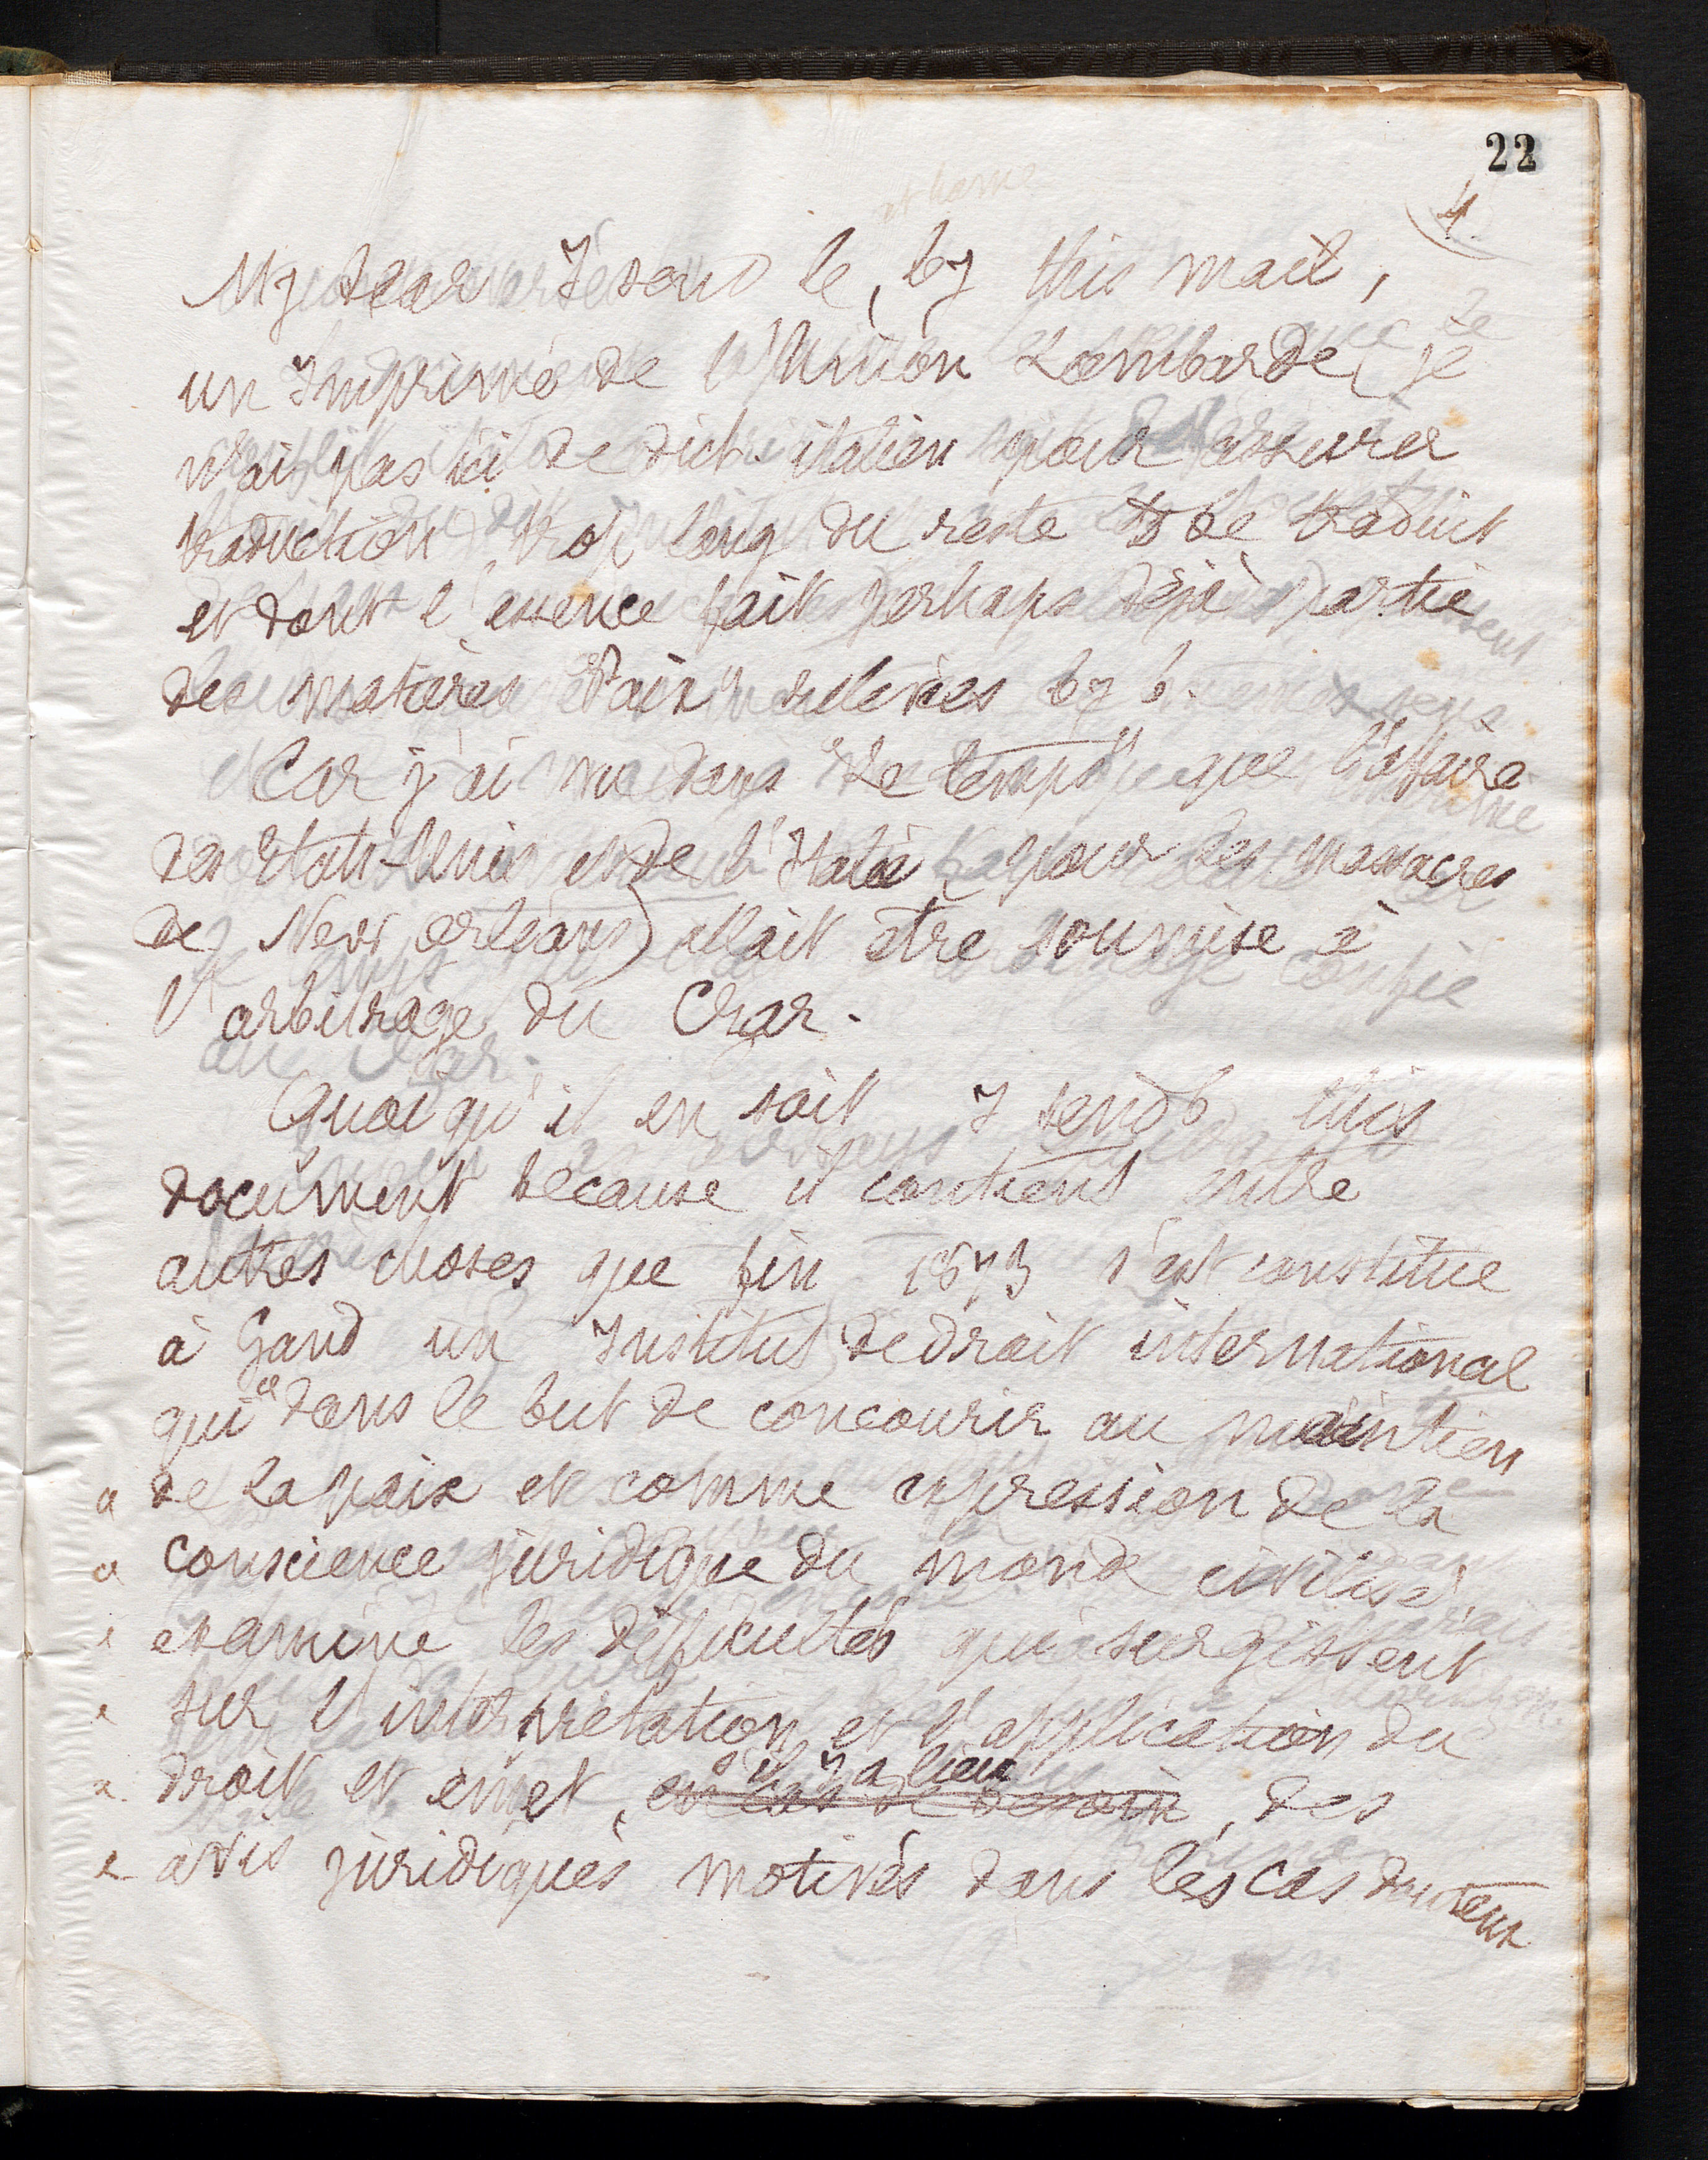 22
4
My dear I send le, by this mail,
un Imprimé de l'Union Lombarde, je
n'ai pas ici de dict. italien pour assurer
traduction, trop long du reste to be traduit
et dont l'essence fait perhaps déjà partie
des matières "Paix" relevées by b.
Car j'ai vu dans "Le temps" que l'affaire
des Etats-Unis et de l'Italie (pour les massacres
de New orléans) allait être soumise à
l'arbitrage du Czar.
Quoi qu'il en soit I send b this
document because il contient entre
autres choses que fin 1873 s'est constitué
à Gand un Institut de droit international
qui dans le but de concourir au maintien
de la paix et comme expression de la
conscience juridique du monde civilisé,
examine les difficultés qui surgissent
sur l'interprétation et l'application du
s'il y a lieu
droit et émet, en cas de besoin, des
avis juridiques motivés dans les cas douteux